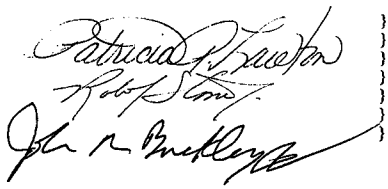 Patricia P. Lawton
Robt Stone Jr.
John M Buckley Jr